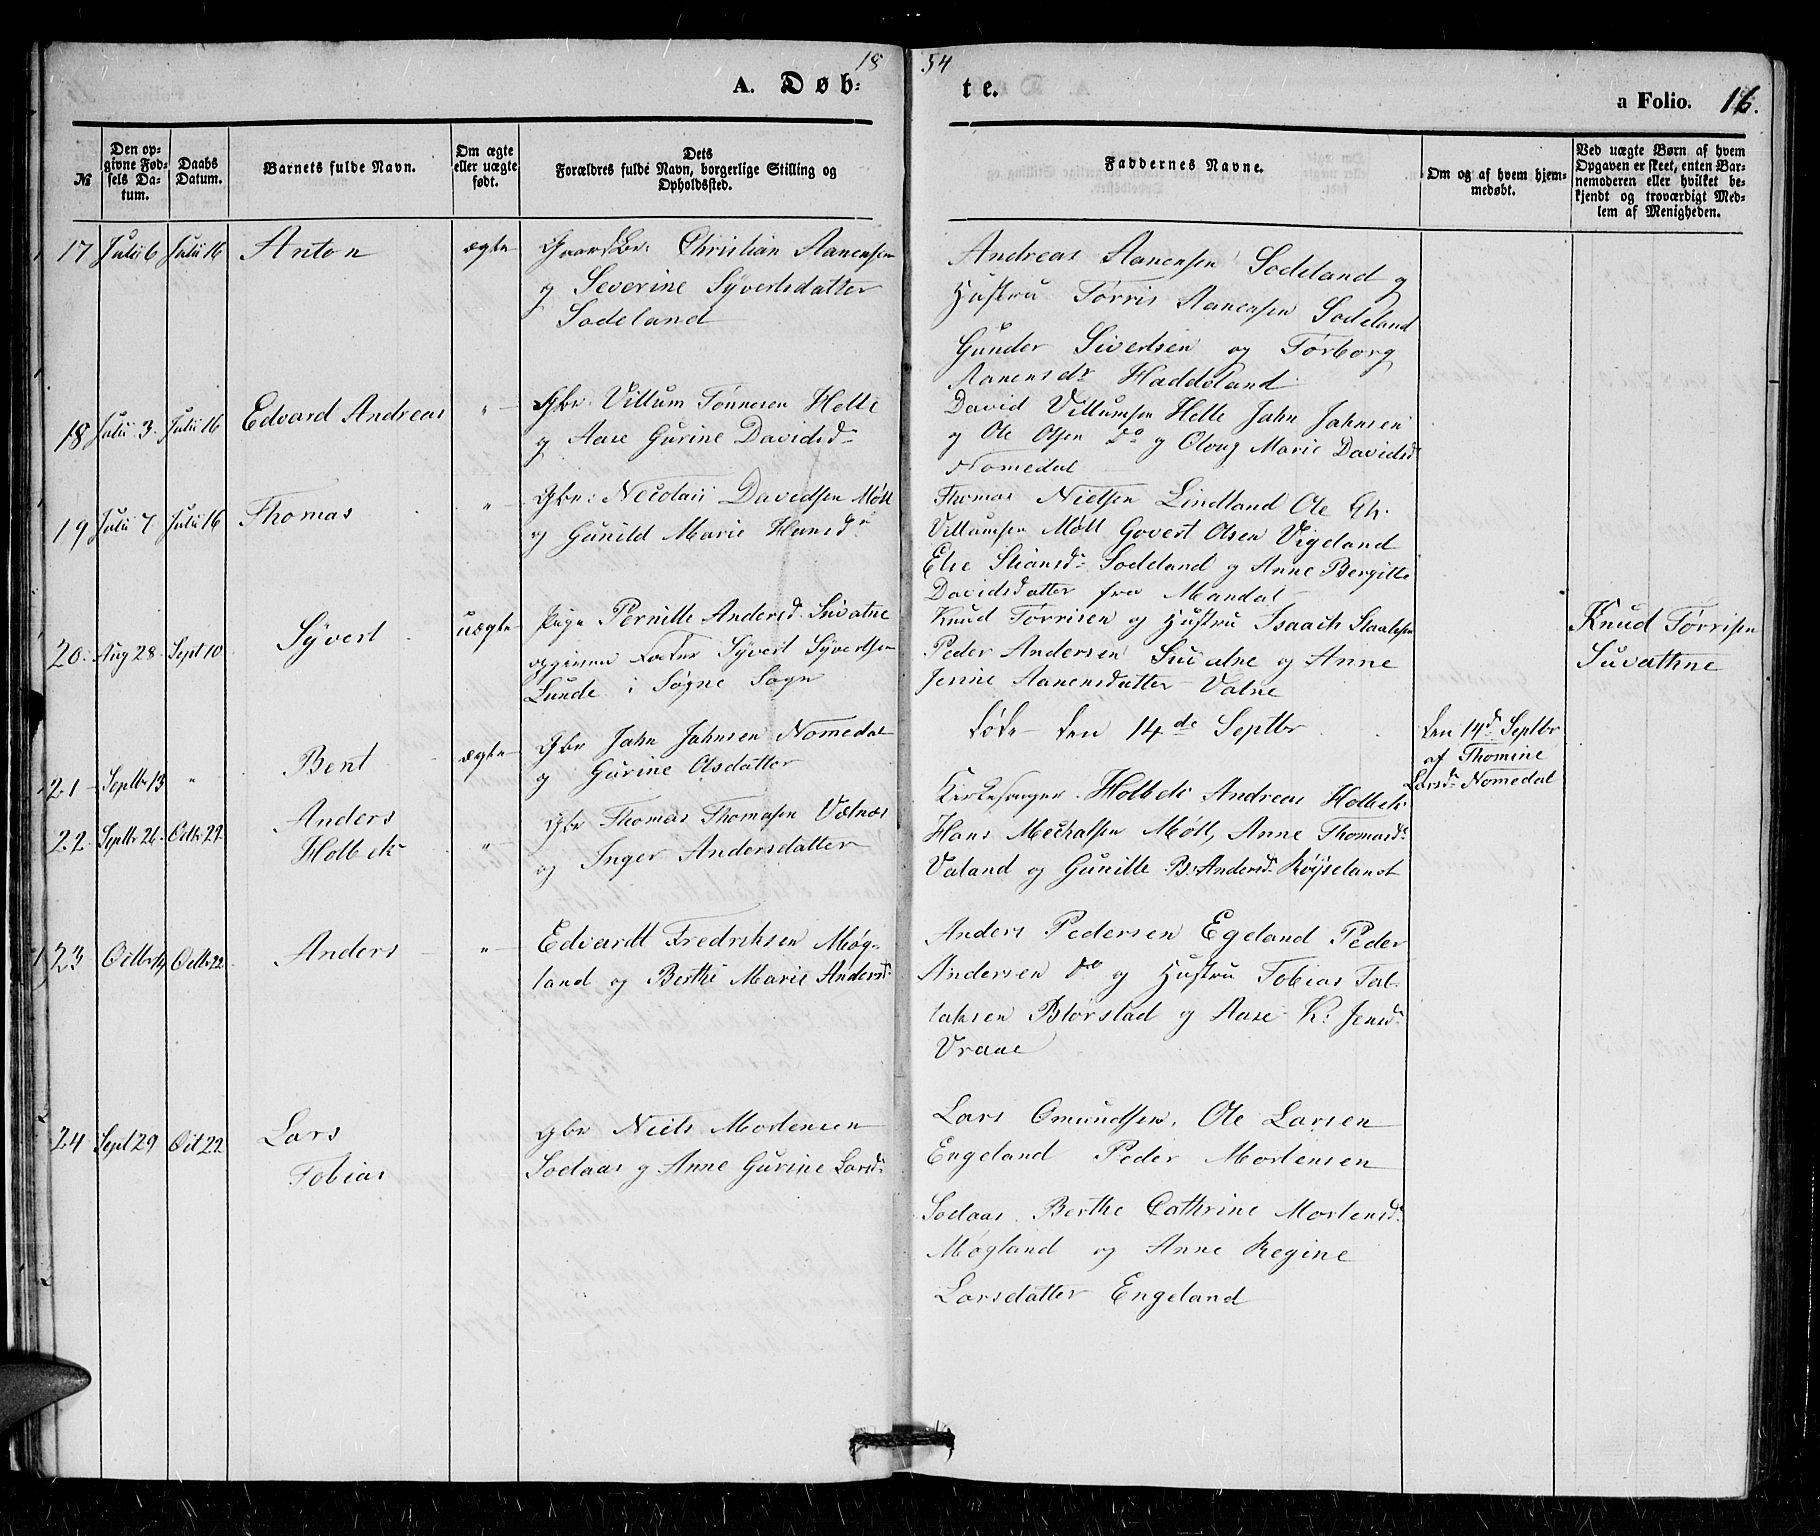 18
54
A. Døb-
te.
a Folio. 16.
№
Den op-
givne Fød-
sels Da-
tum.
Daabs
Datum.
Barnets fulde Navn.
Om ægte
eller uægte
født.
Dets
Forældres fulde Navn, borgerlige Stilling og
Opholdssted.
Faddernes Navne.
Om og af hvem hjem-
medøbt.
Ved uægte Børn af hvem
Opgaven er skeet, enten Bar-
nemoderen eller hvilket be-
kjendt og troværdigt Med-
lem af Menigheden.
17 Julii 6 Julii 16 Anton ægte Gaardbr: Christian Aanensen
og Severine Syvertsdatter
Sodeland
Andreas Aanensen Sodeland og
Hustru Torris Aanensen Sodeland
Gunder Sivertsen og Torborg
Aanensdr Haddeland
18 Julii 3. Julii 16 Edvard Andreas " Gbr: Villum Tønnesen Helle
og Aase Gurine Davidsd
David Villumsen Helle Jahn Jahnsen
og Ole Olsen do og Oloug Marie Davidsd
Nomedal
19 Julii 7 Julii 16 Thomas " Gbr: Nicolaii Davidsen Møll
og Gunild Marie Hansdr
Thomas Nielsen Lindland Ole Gh.
Villumsen Møll Govert Olsen Vigeland
Else Stiansdr Sodeland og Anne Bergitte
Davidsdatter fra Mandal
20. Aug 28 Sept 10 Syvert uægte Pige Pernille Andersd. Suvatne
opgiven Fader Syvert Syvertsen
Lunde i Søgne Sogn
Knud Torrisen og Hustru Isaach Staalesen
Peder Andersen Suvatne og Anne
Jesine Aanensdatter Valne
Knud Torrisen
Suvathne
21 Septbr 13 " Bent ægte Gbr Jahn Jahnsen Nomedal
og Gurine Olsdatter
døde den 14de Septbr
den 14d Septbr
af Thomine
Larsdr Nomedal
22. Septbr 26. Octbr 22. Anders
Holbek " Gbr Thomas Thomasen Valnæs
og Inger Andersdatter
Kirkesanger Holbek Andreas Holbek
Hans Mechalsen Møll, Anne Thomasdr
Valand og Gunille B. Andersdr Røyseland
23 Octbr 14 Octbr 22 Anders " Edvardt Fredriksen Møg-
land og Berthe Marie Andersdr
Anders Pedersen Egeland Peder
Andersen do og Hustru Tobias Tal-
laksen Blørstad og Aase K. Jensdr
Vraae
24 Sept 29 Oct 22 Lars
Tobias
Gbr Niels Mortensen
Sodaas og Anne Gurine Larsdr
Lars Omundsen, Ole Larsen
Engeland Peder Mortensen
Sodaas. Berthe Cathrine Mortensdr
Møgland og Anne Regine
Larsdatter Engeland